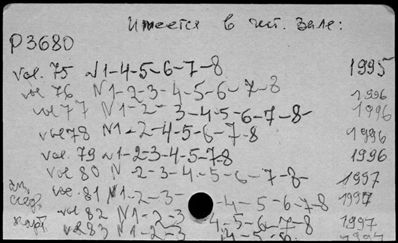 Имеется в чит. Зале:
P3680
vol. 75 N1-4-5-6-7-8 1995
vol 76 N1-2-3-4-5-6-7-8 1996
vol 77 N1-2-3-4-5-6-7-8- 1996
vol 78 N1-2-4-5-6-7-8 1996
vol. 79 N1-2-3-4-5-7-8 1996
vol 80 N-2-3-4-5-6-7-8- 1997
vol. 81 N1-2-3-4-5-6-7-8 1997
vol 82 N1-2-3-4-5-6-7-8 1997
vol. 83 N1-2-3-4-5- 1997